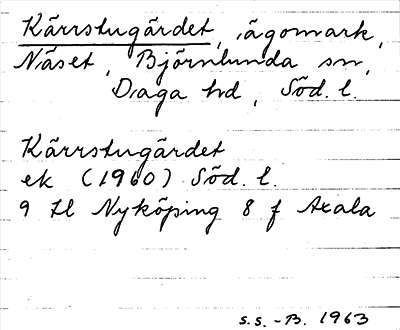 Kärrstugärdet, ägomark,
Näset, Björnlunda sn,
Daga hd, Söd. l.
Kärrstugärdet
ek (1960) Söd. l.
9 H Nyköping 8 f Axala
s.s. - B. 1963